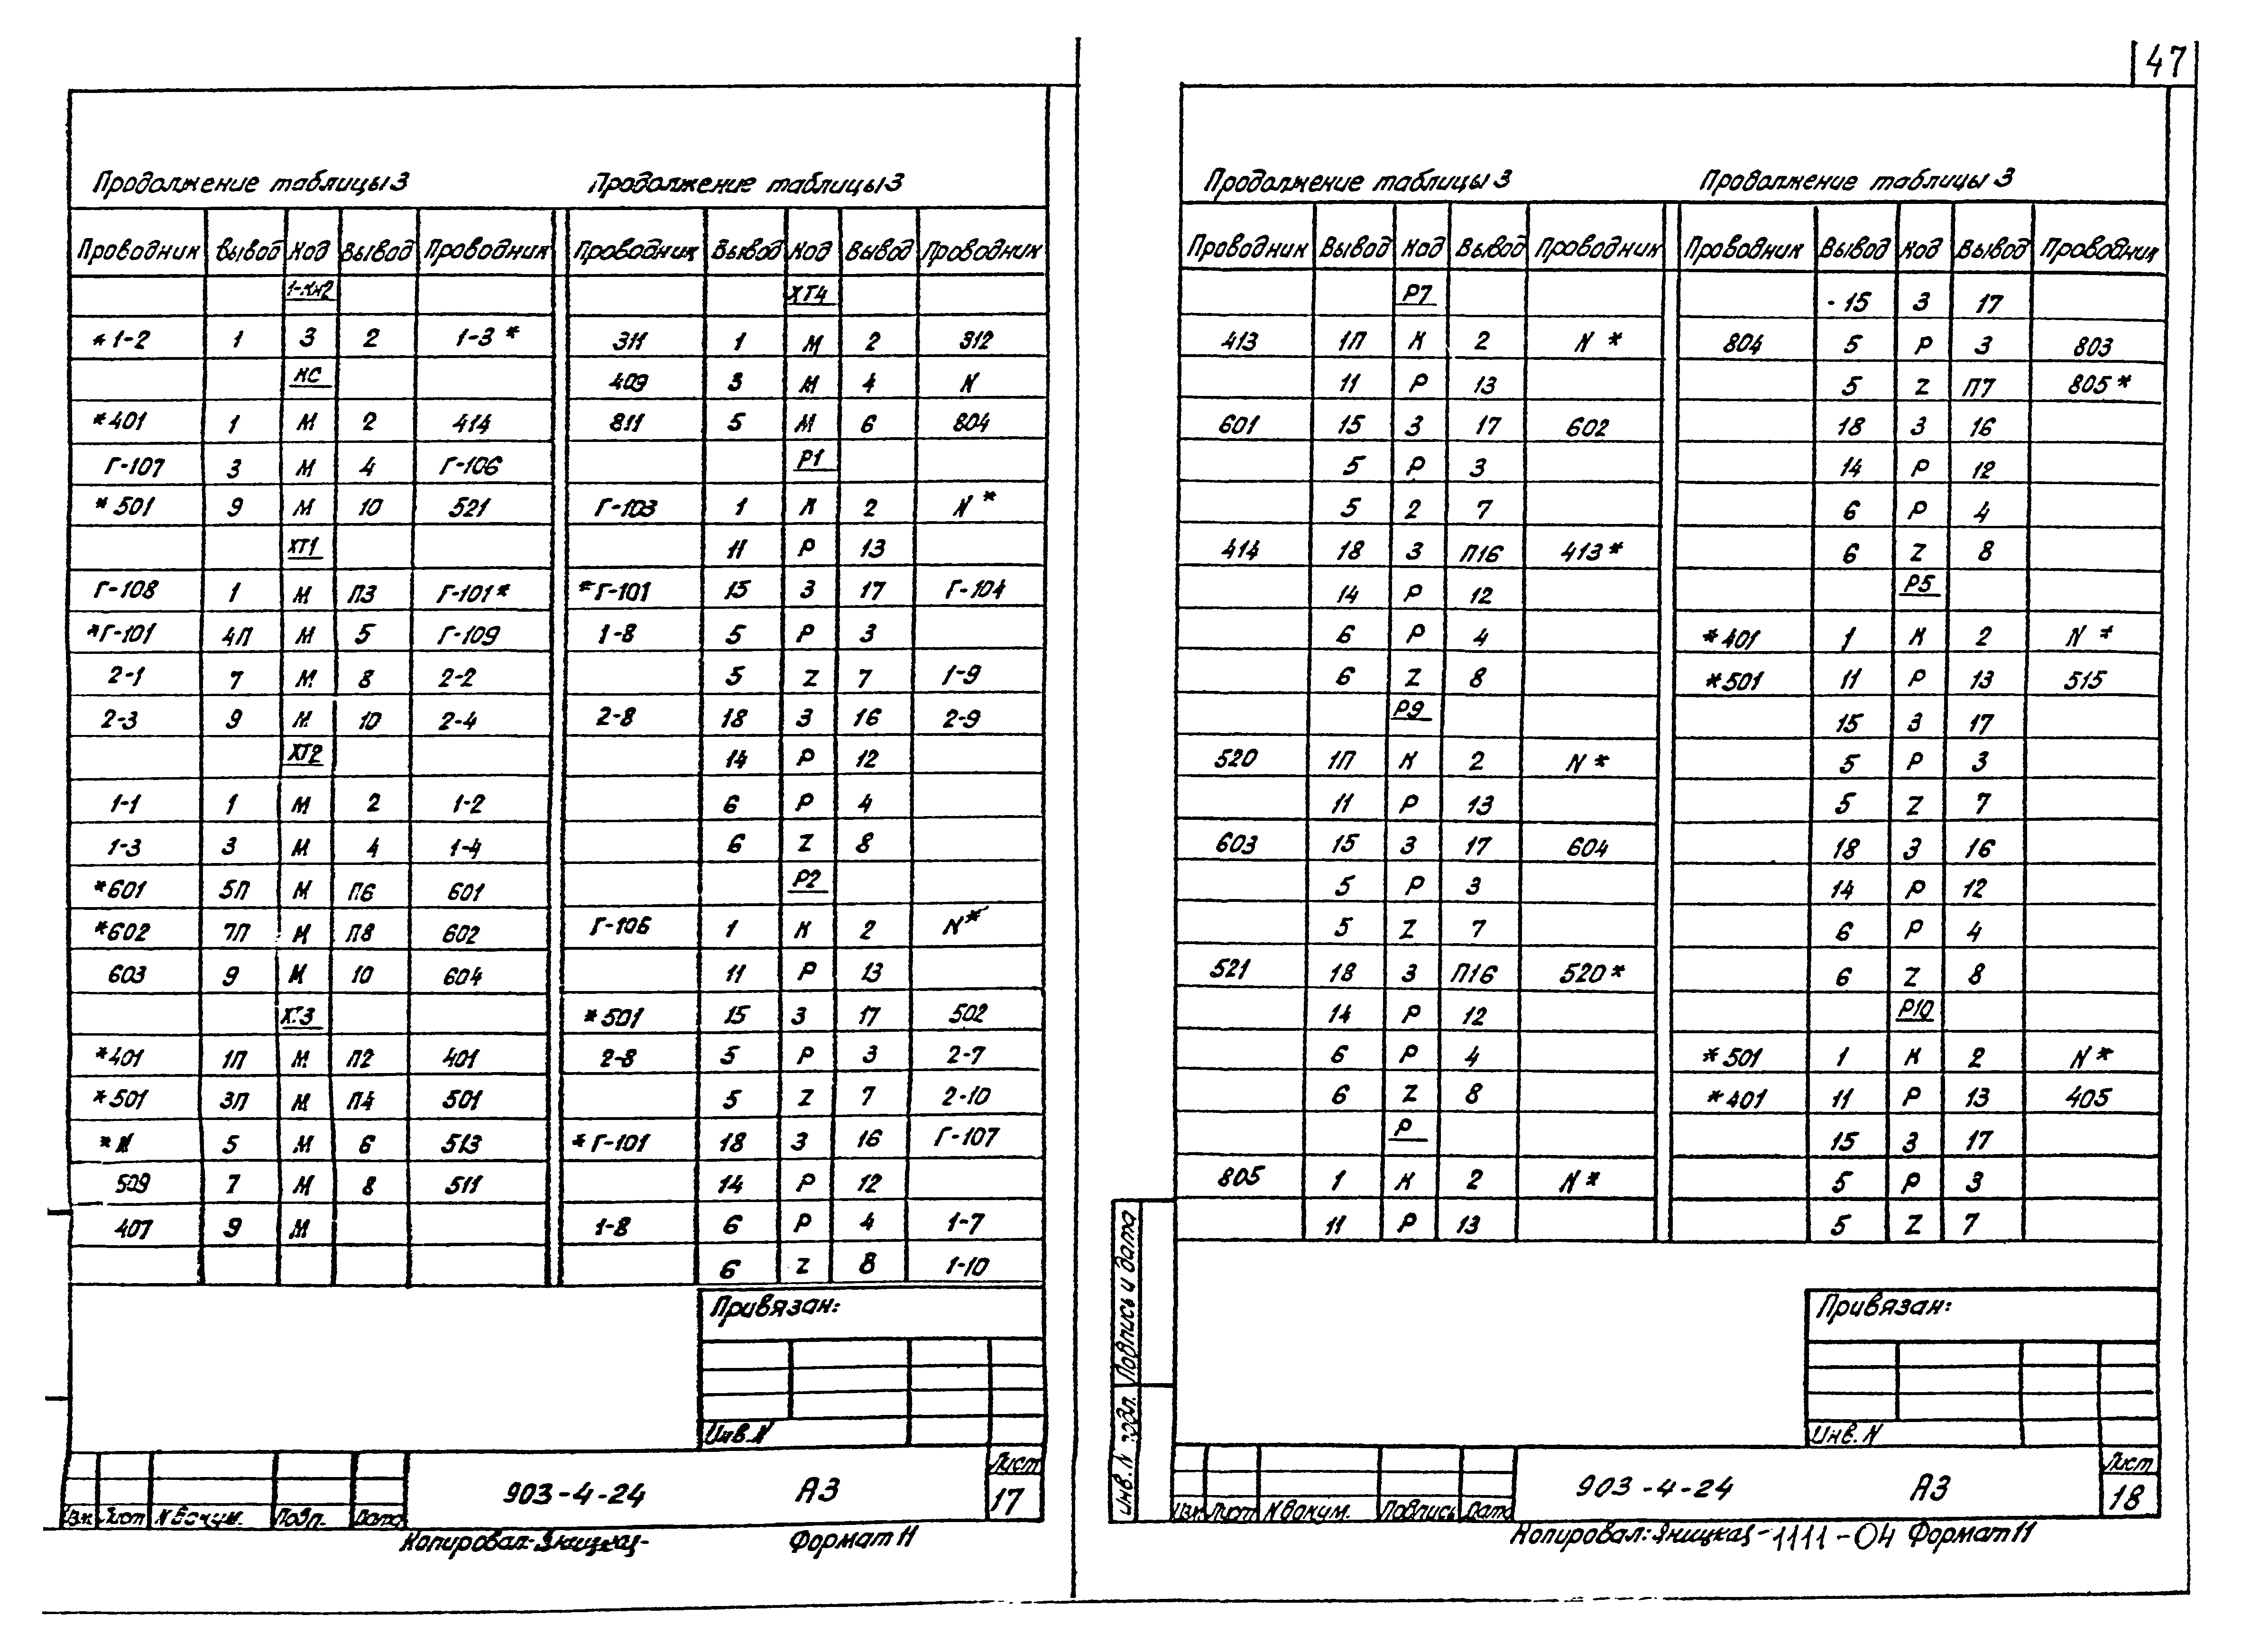 47
Продолжение таблицы 3
Проводник Вывод Код Вывод Проводник
1-Кн2
*1-2 1 З 2 1-3*
КС
*401 1 М 2 414
Г-107 3 М 4 Г-106
*501 9 М 10 521
ХТ1
Г-108 1 М П3 Г-101*
*Г-101 4П М 5 Г-109
2-1 7 М 8 2-2
2-3 9 М 10 2-4
ХТ2
1-1 1 М 2 1-2
1-3 3 М 4 1-4
*601 5П М П6 601
*602 7П М П8 602
603 9 М 10 604
ХТ3
*401 1П М П2 401
*501 3П М П4 501
*N 5 М 6 513
509 7 М 8 511
407 9 М
Продолжение таблицы 3
Проводник Вывод Код Вывод Проводник
ХТ4
311 1 М 2 312
409 3 М 4 N
811 5 М 6 804
Р1
Г-103 1 К 2 N*
11 Р 13
*Г-101 15 З 17 Г-104
1-8 5 Р 3
5 Z 7 1-9
2-8 18 З 16 2-9
14 Р 12
6 Р 4
6 Z 8
Р2
Г-106 1 К 2 N*
11 Р 13
*501 15 З 17 502
2-8 5 Р 3 2-7
5 Z 7 2-10
*Г-101 18 З 16 Г-107
14 Р 12
1-8 6 Р 4 1-7
6 Z 8 1-10
Привязан:
Инв. N
Изм. Лист N докум. Подп. Дата
903-4-24 А3
Лист
17
Копировал: Яницкая Формат 11
Продолжение таблицы 3
Проводник Вывод Код Вывод Проводник
Р7
413 1П К 2 N*
11 Р 13
601 15 З 17 602
5 Р 3
5 2 7
414 18 З П16 413*
14 Р 12
6 Р 4
6 Z 8
Р9
520 1П К 2 N*
11 Р 13
603 15 З 17 604
5 Р 3
5 Z 7
521 18 З П16 520*
14 Р 12
6 Р 4
6 Z 8
Р
805 1 К 2 N*
11 Р 13
Продолжение таблицы 3
Проводник Вывод Код Вывод Проводник
-15 З 17
804 5 Р 3 803
5 Z П7 805*
18 З 16
14 Р 12
6 Р 4
6 Z 8
Р5
*401 1 К 2 N*
*501 11 Р 13 515
15 З 17
5 Р 3
5 Z 7
18 З 16
14 Р 12
6 Р 4
6 Z 8
Р10
*501 1 К 2 N*
*401 11 Р 13 405
15 З 17
5 Р 3
5 Z 7
Привязан:
Инв. N
Инв. N подл. Подпись и дата
Изм. Лист N докум. Подпись Дата
903-4-24 А3
Лист
18
Копировал: Яницкая - 1111-04 Формат 11